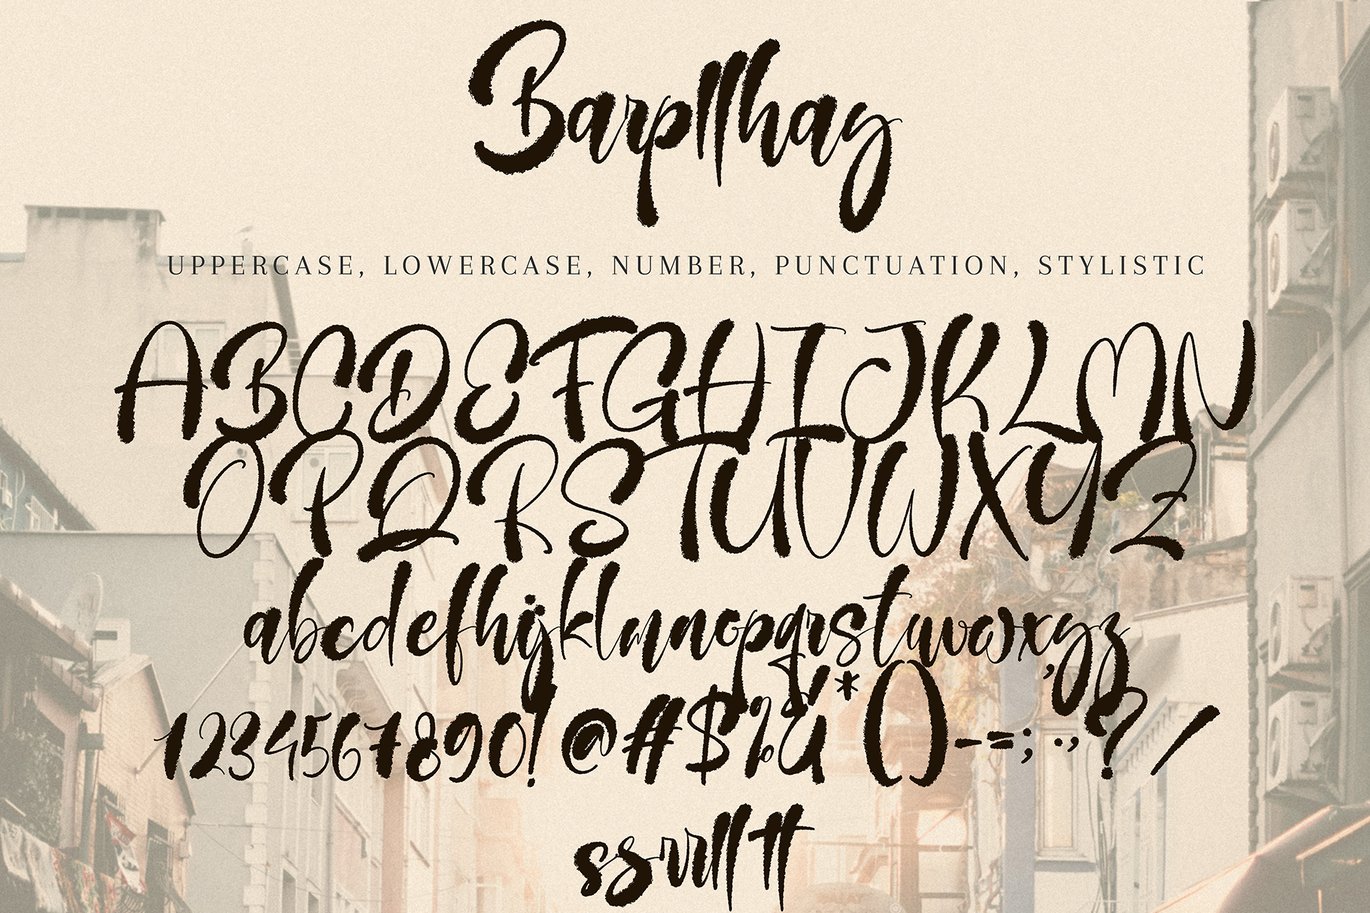 Barpllhag
UPPERCASE, LOWERCASE, NUMBER, PUNCTUATION, STYLISTIC
ABCDEFGHIJKLMN
OPQRSTUVWXYZ
abcdefhijklmnopqrstuvwxyz
1234567890!@#$%&*()-=;.,?/
ss rr ll tt